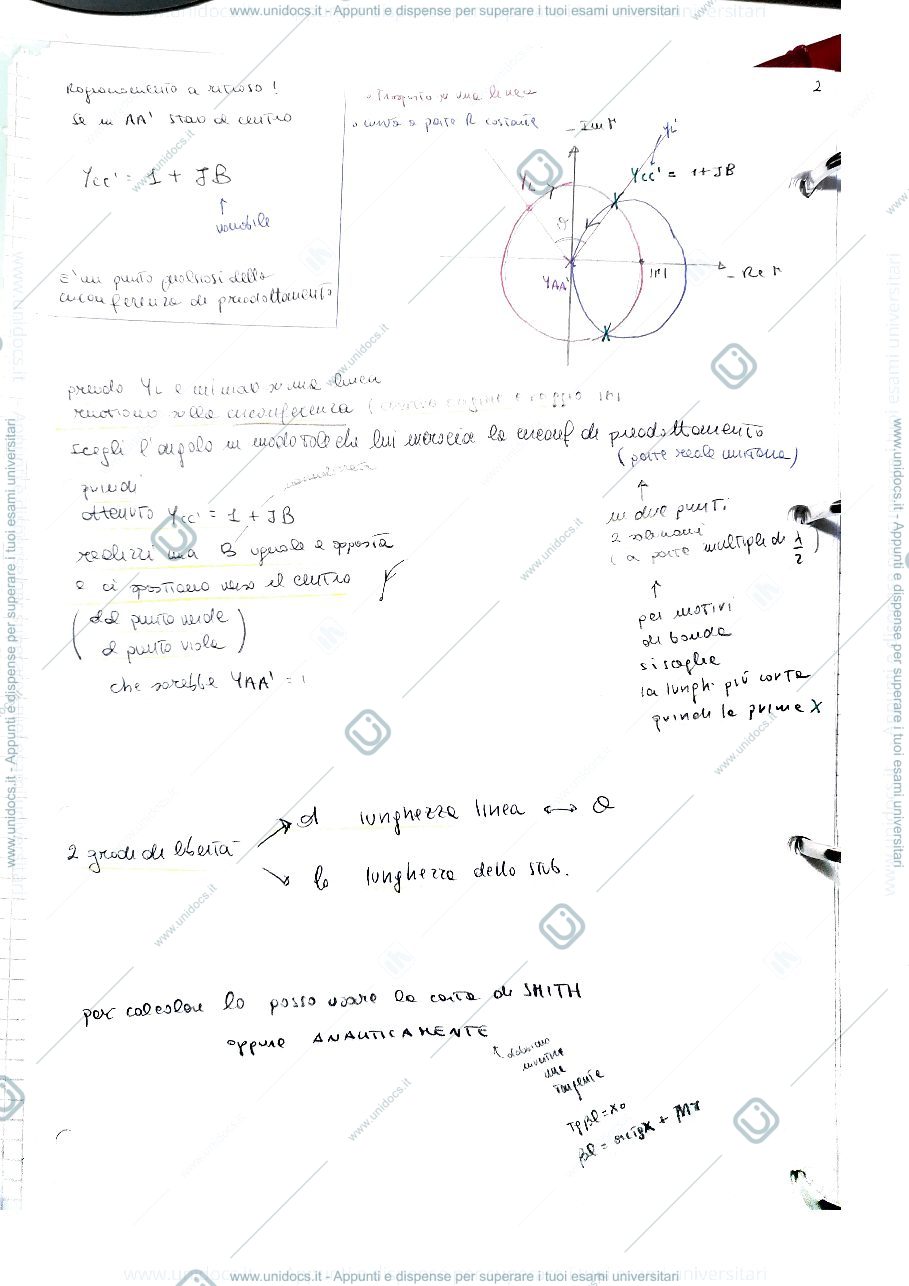 www.unidocs.it - Appunti e dispense per superare i tuoi esami universitari
2
Ragionamento a ritroso !
Se in AA' stavo al centro
Ycc' = 1 + JB
↑
variabile
E' un punto qualsiasi della
circonferenza di preadattamento
→ Trasporto su una linea
curva a parte R costante
Im Γ
YL'
Ycc' = 1+JB
YL
θ
YAA'
|Γ|
Re Γ
prendo YL e mi muovo su una linea
ruotiamo sulla circonferenza ( origine e raggio |Γ|
scegli l'angolo in modo tale che lui incrocia la circonf di preadattamento
(parte reale unitaria)
quindi
ottenuto Ycc' = 1 + JB
realizzi una B uguale e opposta
e ci spostiamo verso il centro
( dal punto verde
al punto viola )
che sarebbe YAA' = 1
↑
in due punti
2 soluzioni
( a parte multipli di λ/2 )
↑
per motivi
di banda
si sceglie
la lungh più corta
quindi la prima X
2 gradi di libertà
d lunghezza linea ↔ θ
lo lunghezza dello stub.
per calcolare lo posso usare la carta di SMITH
oppure ANALITICAMENTE
↑ dobbiamo
invertire
una
tangente
Tg βl = Xo
βl = arctg X + Mπ
www.unidocs.it - Appunti e dispense per superare i tuoi esami universitari